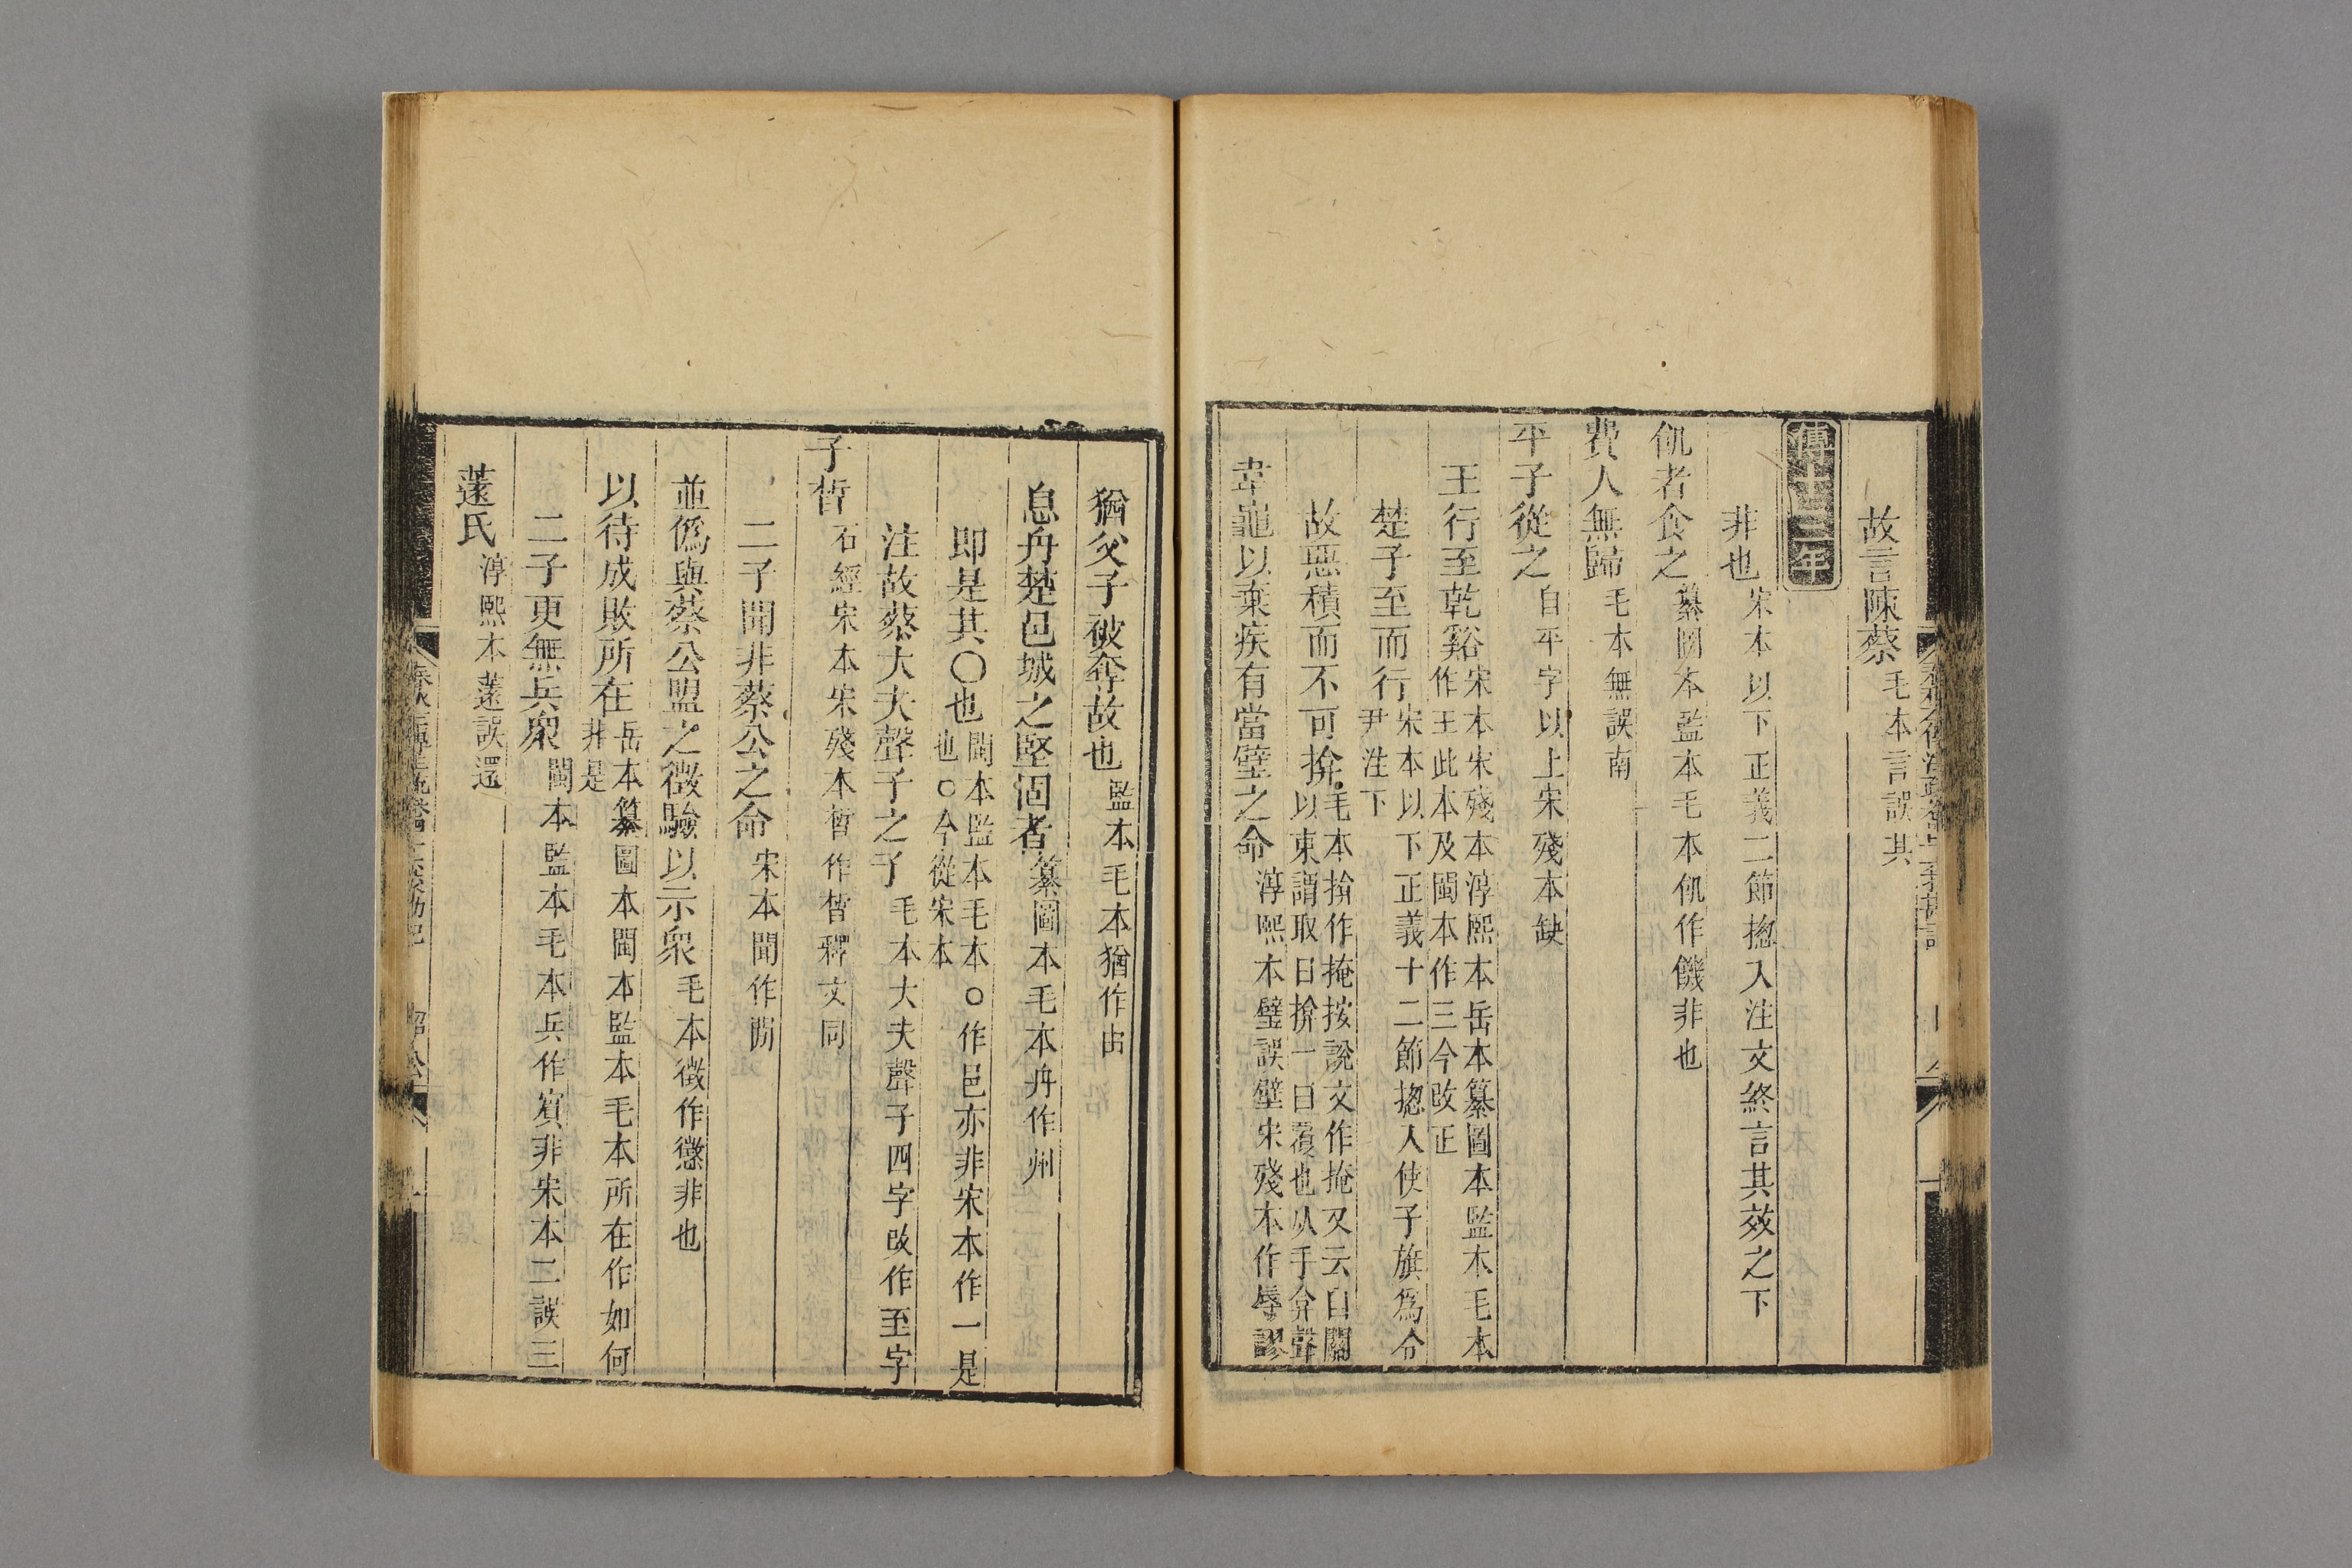 故言陳蔡毛本言誤其
傳十三年
非也宋本以下正義二節揔入注文終言其效之下
飢者食之纂圖本監本毛本飢作饑非也
費人無歸毛本無誤南
平子從之自平字以上宋殘本缺
王行至乾谿宋本宋殘本淳熙本岳本纂圖本監本毛本
作王此本及閩本作三今改正
楚子至而行宋本以下正義十二節揔入使子旗爲令
尹注下
故惡積而不可揜毛本揜作掩按說文作掩又云自關
以東謂取曰揜一曰覆也从手弇聲
韋龜以棄疾有當璧之命淳熙本璧誤壁宋殘本作辱謬
猶父子破奔故也監本毛本猶作由
息舟楚邑城之堅固者纂圖本毛本舟作州
即是其〇也閩本監本毛本〇作邑亦非宋本作一是
也〇今從宋本
注故蔡大夫聲子之子毛本大夫聲子四字改作至字
子晳石經宋本宋殘本晳作晢釋文同
二子聞非蔡公之命宋本聞作閒
並僞與蔡公盟之徵驗以示衆毛本徵作懲非也
以待成敗所在岳本纂圖本閩本監本毛本所在作如何
非是
二子更無兵衆閩本監本毛本兵作賓非宋本二誤三
薳氏淳熙本薳誤還